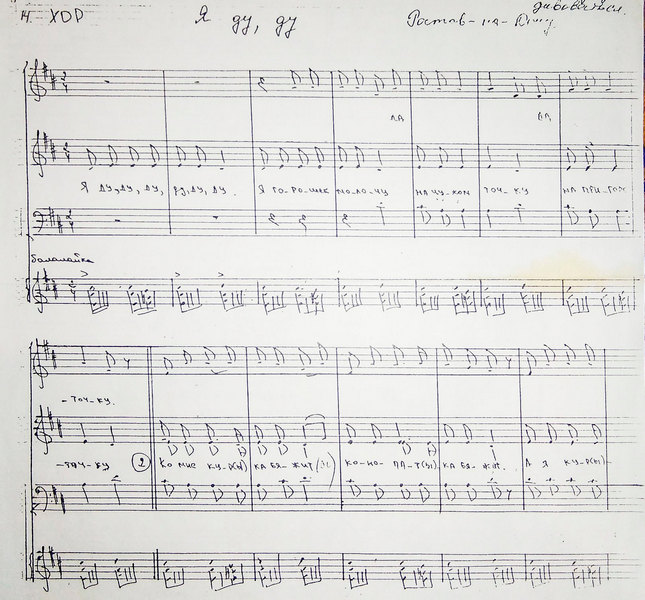 14. ХОР Я ду, ду Ростов-на-Дону
ла ла
Я ду, ду, ду, ду, ду, ду. Я го-ро-шек мо-ло-чу на чу-жом точ-ку на при-
балалайка
- точ-ку.
- точ-ку 2 Ко мне ку-р(ы) ка бя-жит(ы) ко-но-па-т(ы) ка бя-жит. А я ку-р(ы)